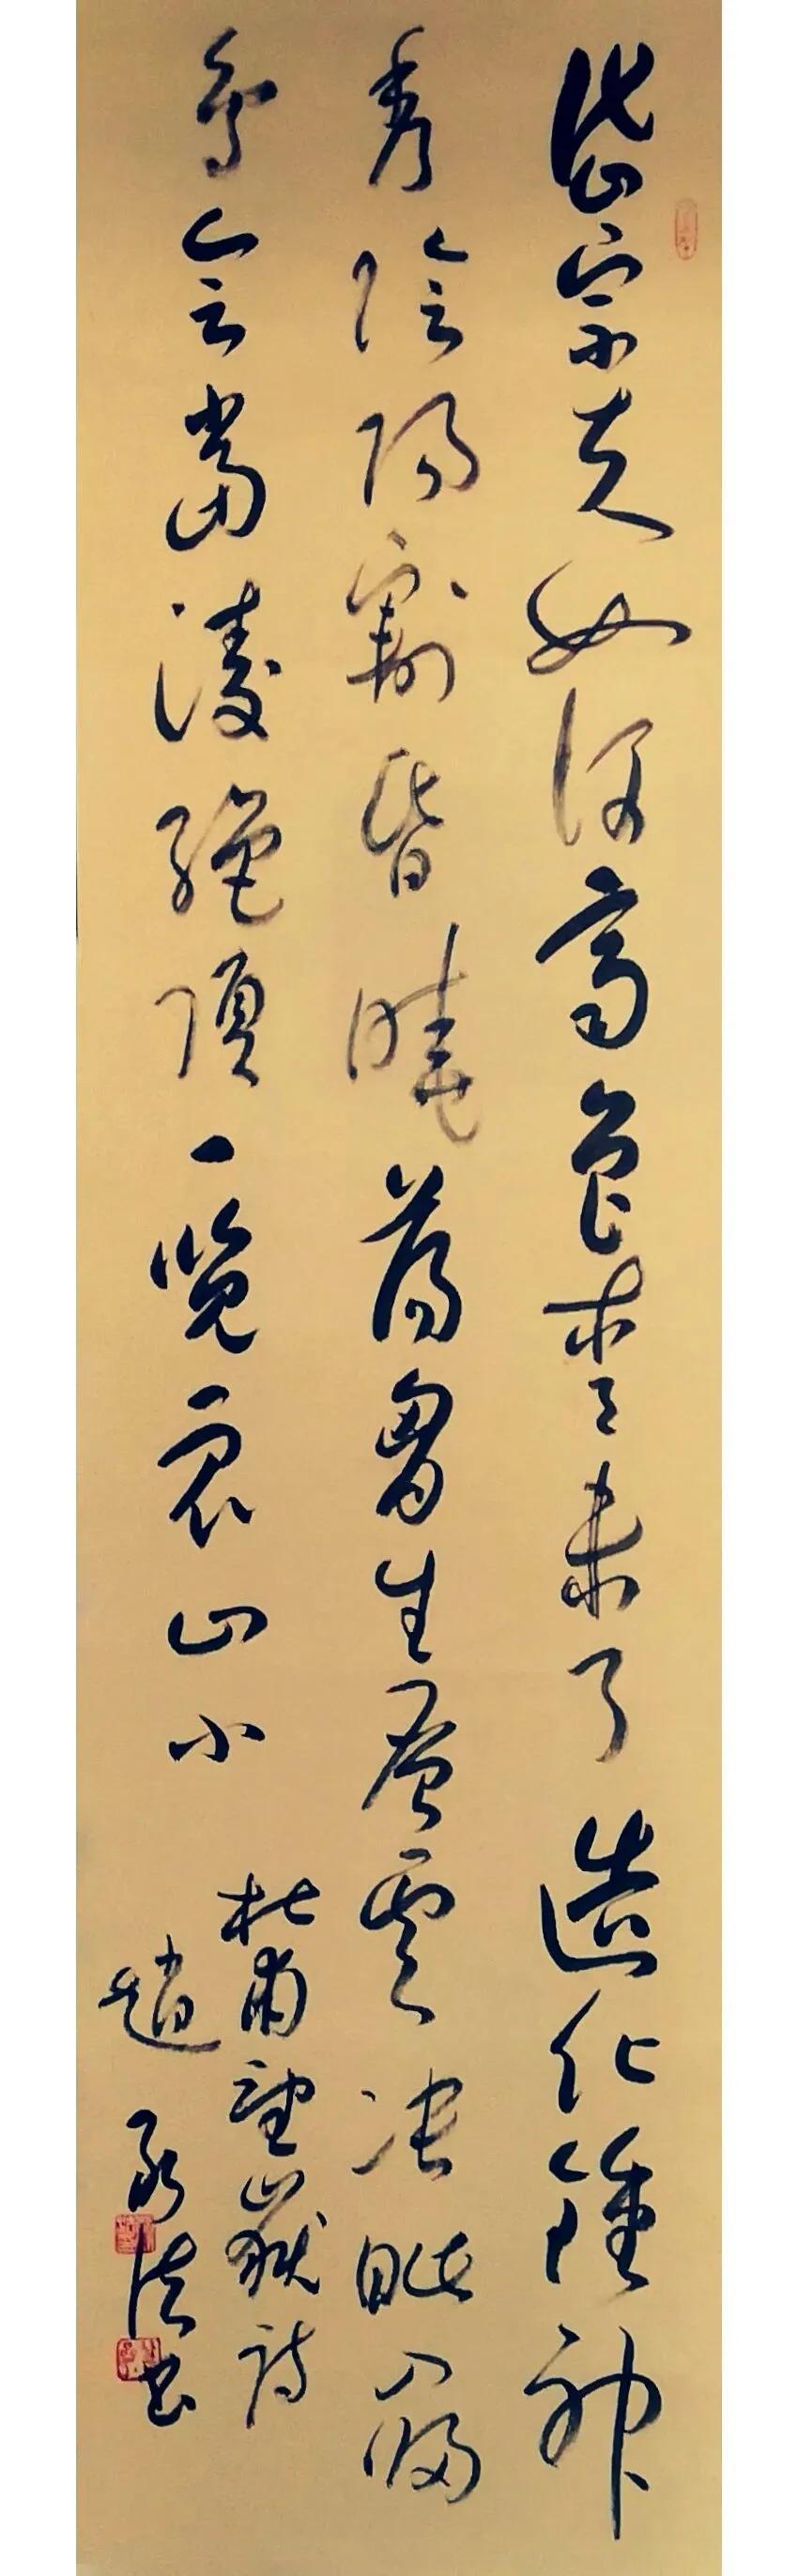 岱宗夫如何齊魯青未了造化鍾神
秀陰陽割昏曉蕩胷生層雲决眦入歸
鳥會當凌絕頂一覽眾山小
杜甫望嶽詩
趙 书